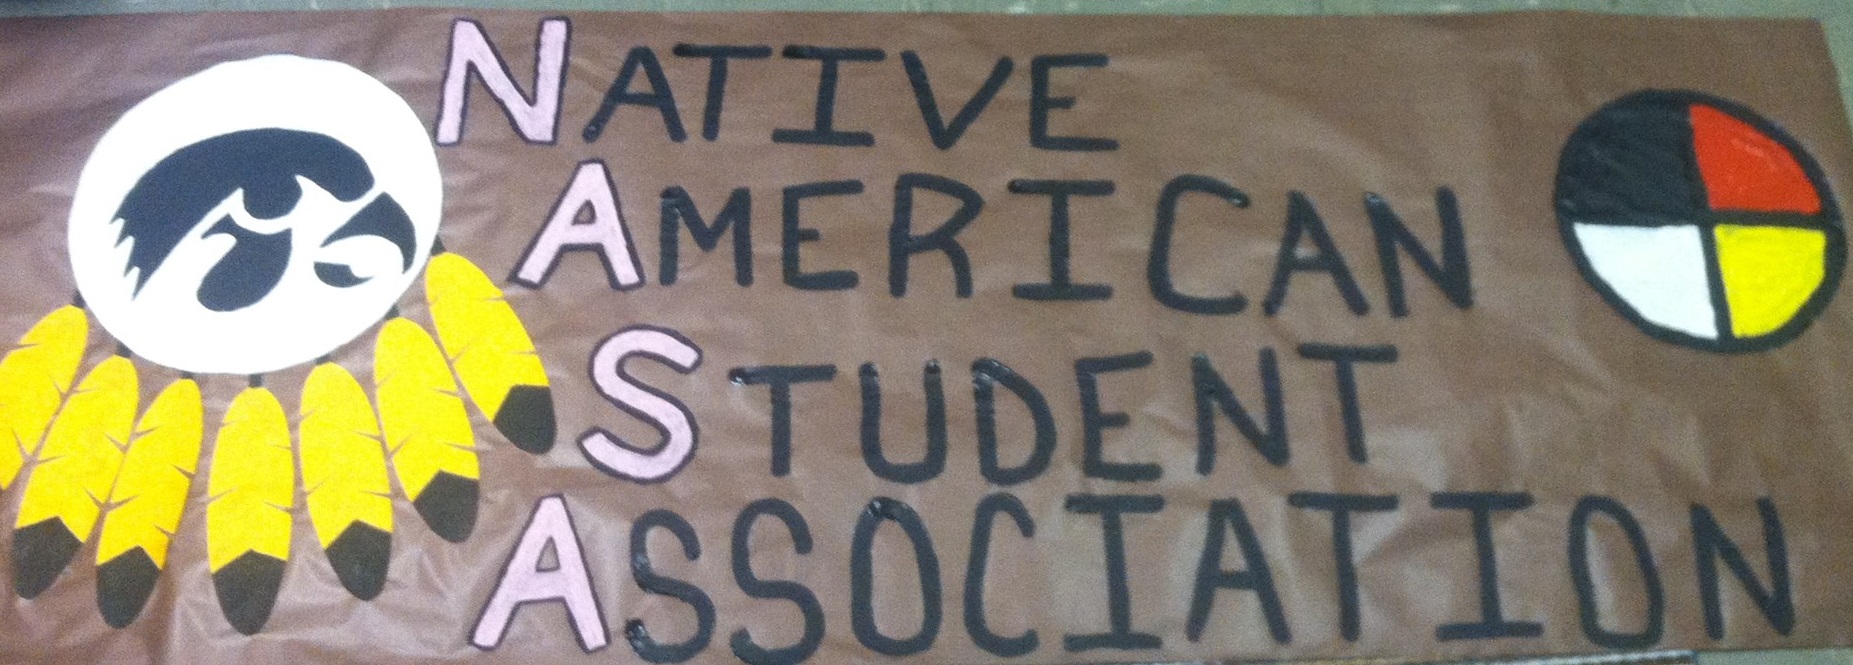 NATIVE
AMERICAN
STUDENT
ASSOCIATION